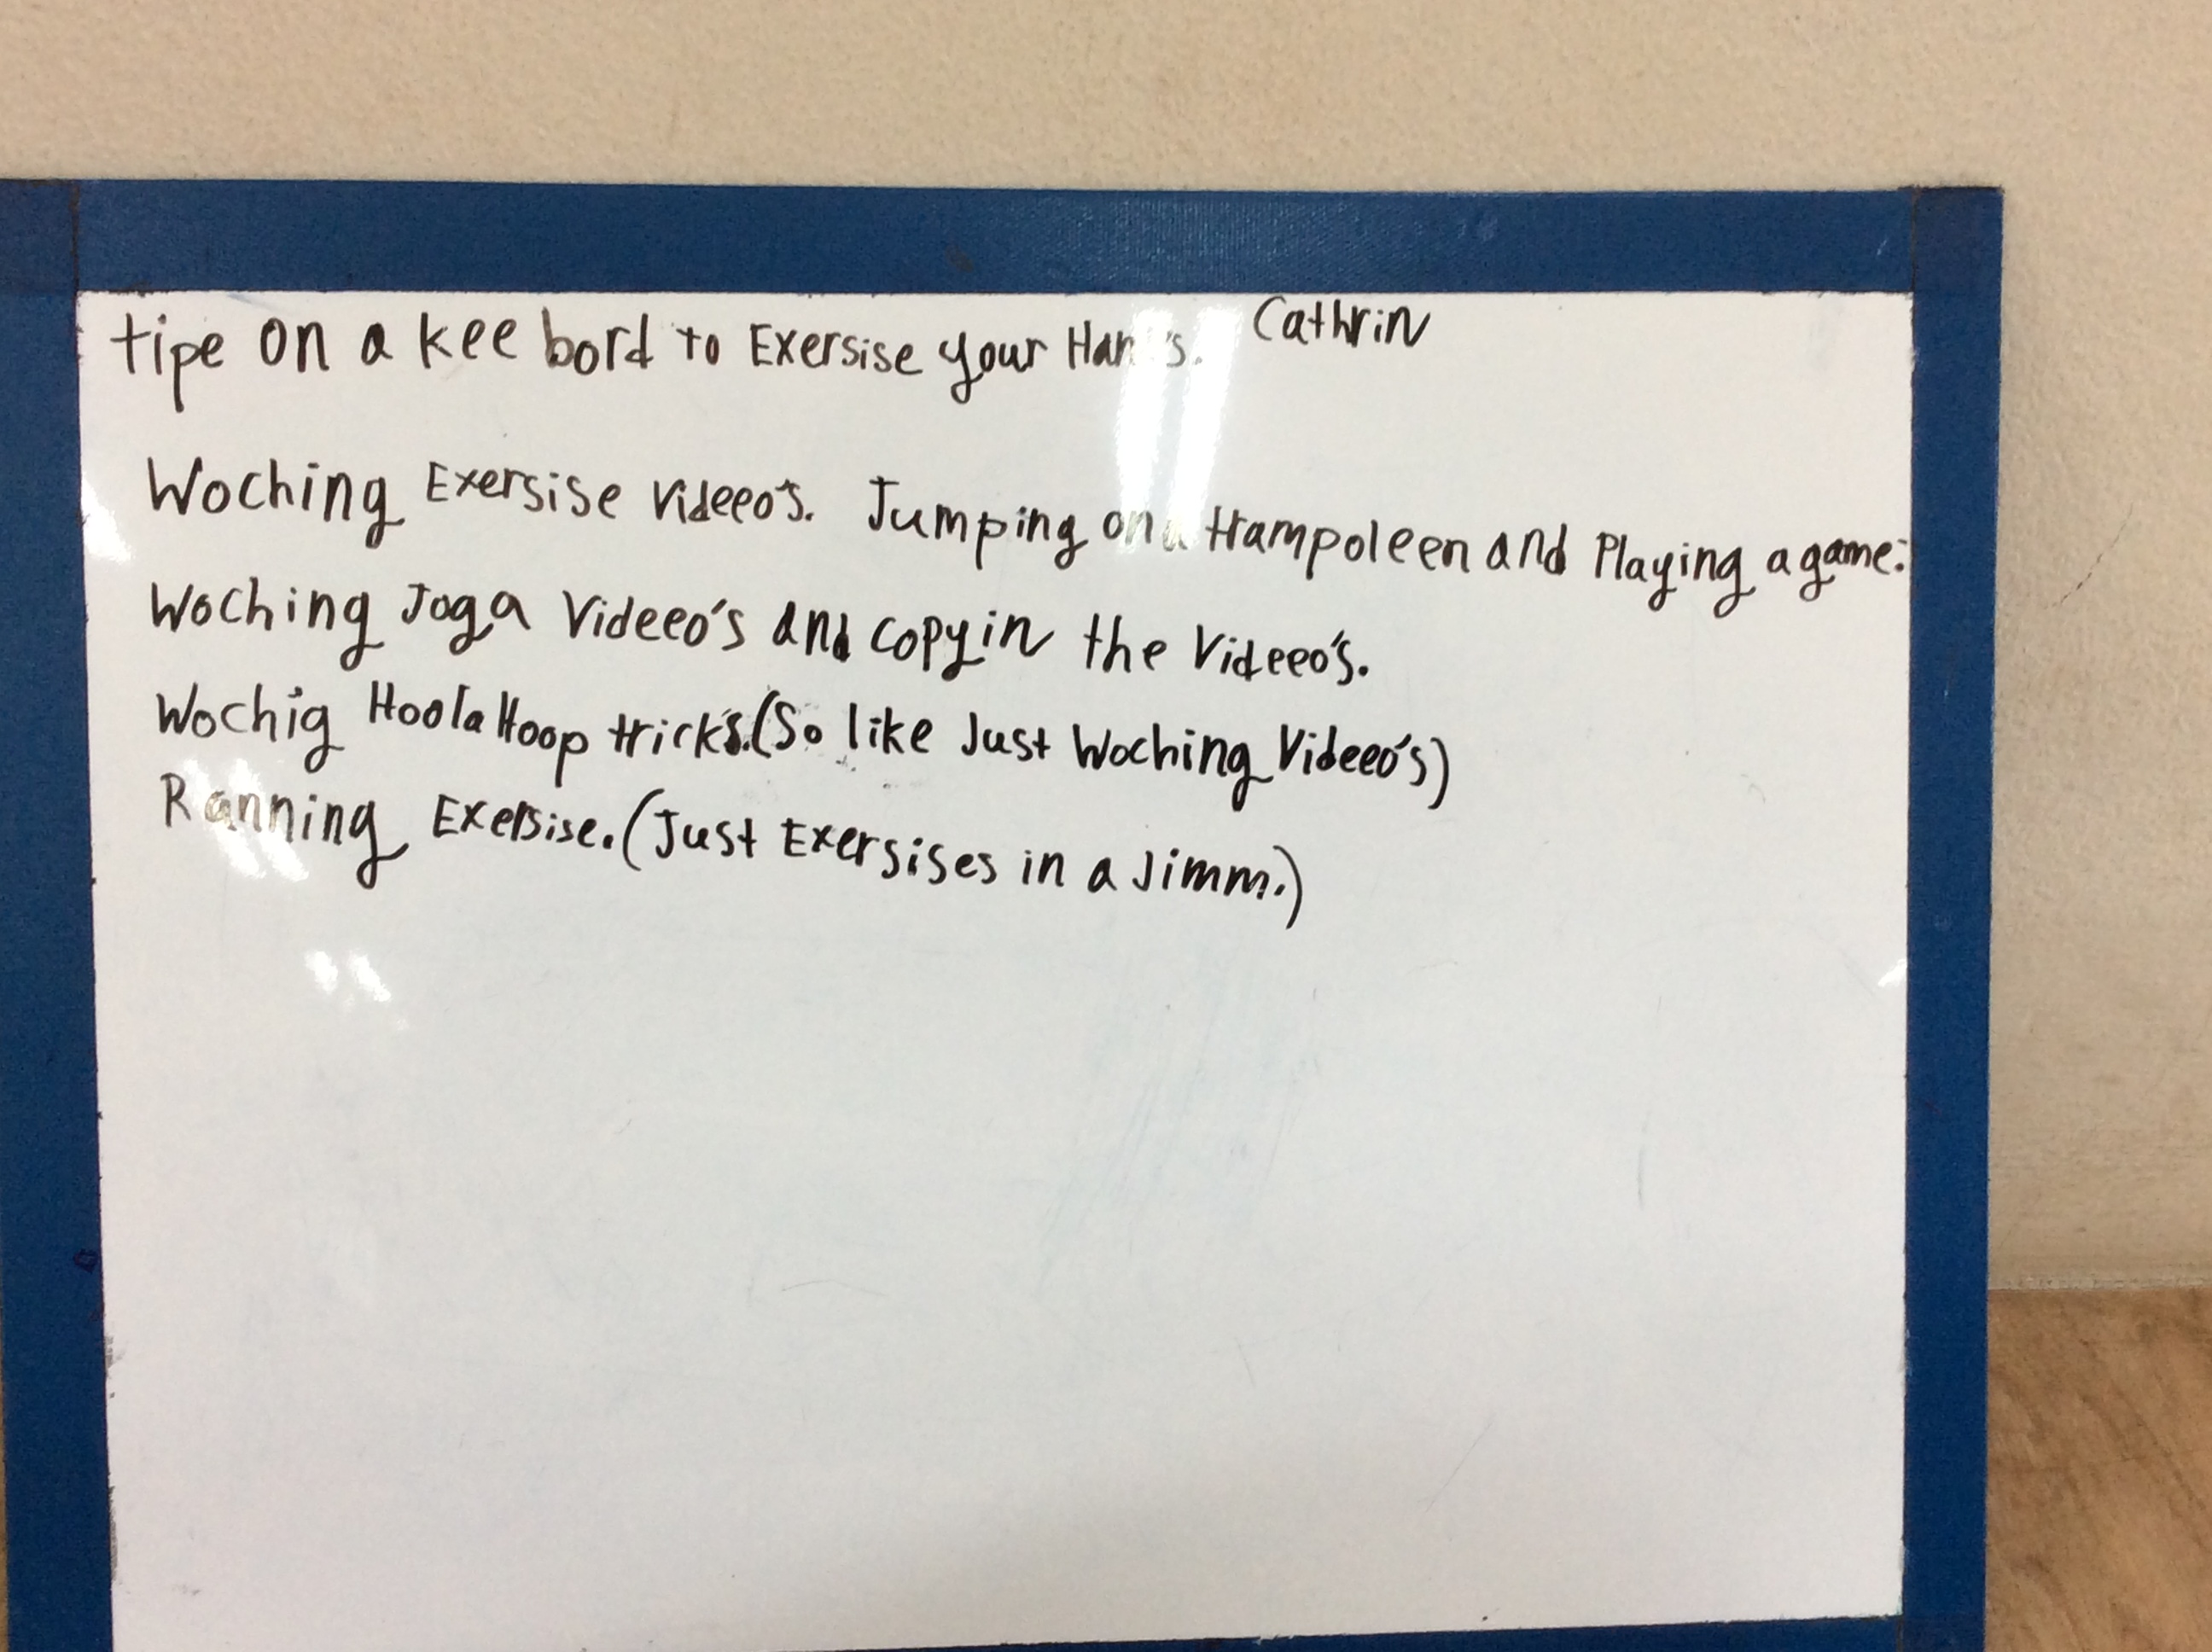 Cathrin
tipe on a kee bord to Exersise your Hands.
Woching Exersise Videeo's. Jumping on a trampoleen and Playing a game.
Woching Joga Videeo's and copyin the Videeo's.
Wochig Hoola Hoop tricks. (So like Just Woching Videeo's)
Ranning Exersise. (Just Exersises in a Jimm.)